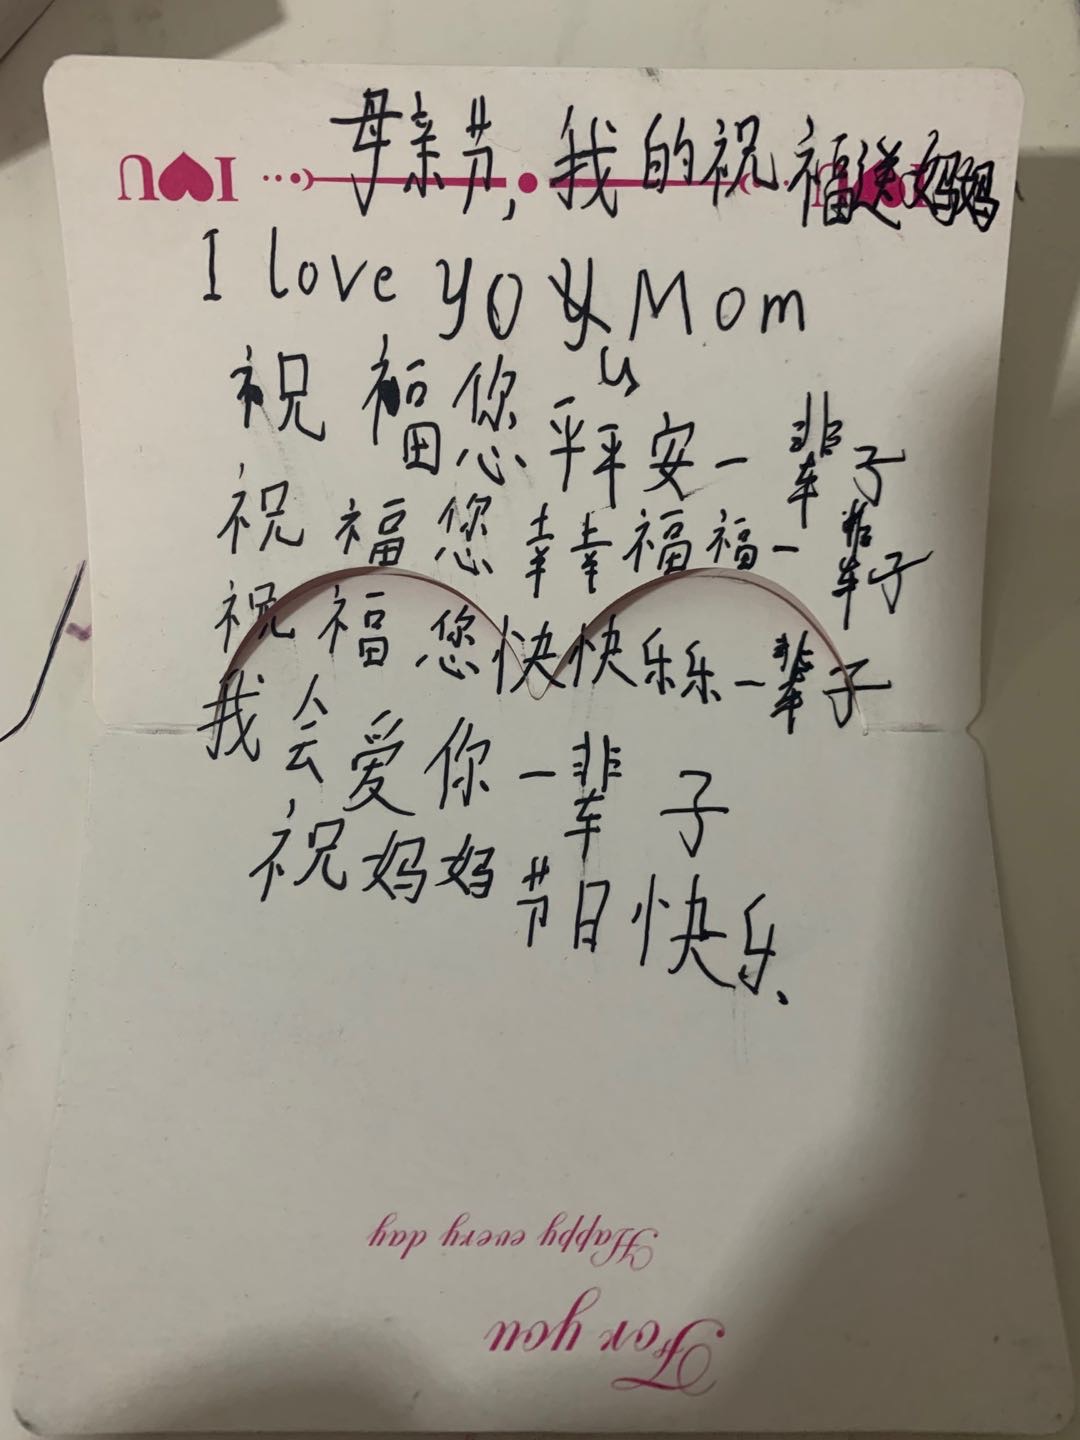 母亲节,我的祝福送妈妈
I♥U
I love you Mom
祝福您平平安安一辈子
祝福您幸幸福福一辈子
祝福您快快乐乐一辈子
我会爱你一辈子
祝妈妈节日快乐.
Happy every day
For you